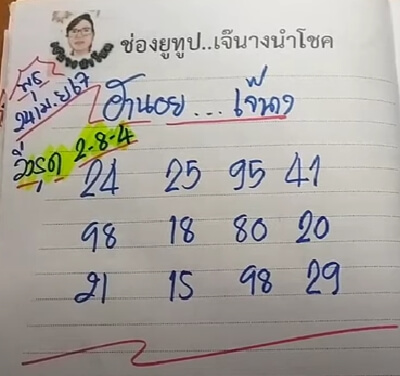 ช่องยูทูป..เจ๊นางนำโชค
พุธ
24/เม.ย/67
ฮานอย...เจ๊นาง
วิ่งรูด 2-8-4
24 25 95 41
98 18 80 20
21 15 98 29